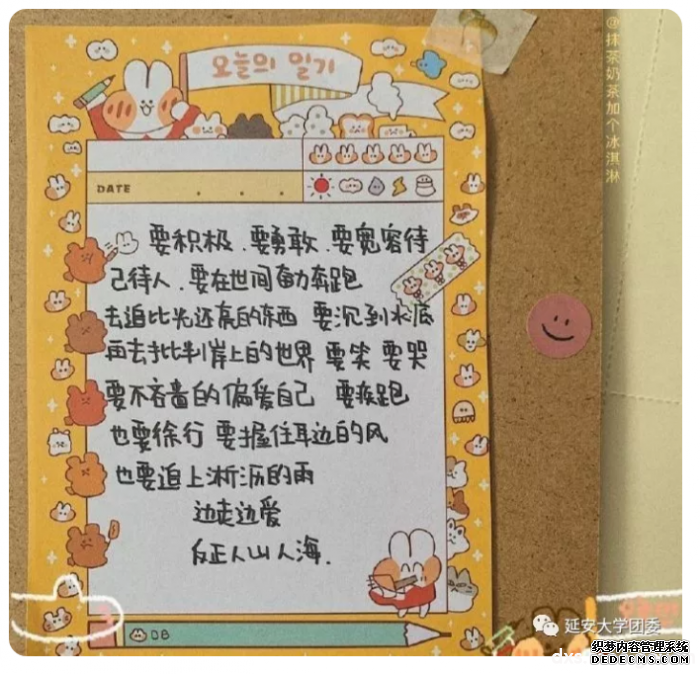 @抹茶奶茶加个冰淇淋
오늘의 일기
DATE
要积极.要勇敢.要宽容待
己待人.要在世间奋力奔跑
去追比光还亮的东西 要沉到水底
再去批判岸上的世界 要笑 要哭
要不吝啬的偏爱自己 要疾跑
也要徐行 要握住耳边的风
也要追上淅沥的雨
边走边爱
反正人山人海.
DB
延安大学团委
织梦内容管理系统
DEDECMS.COM